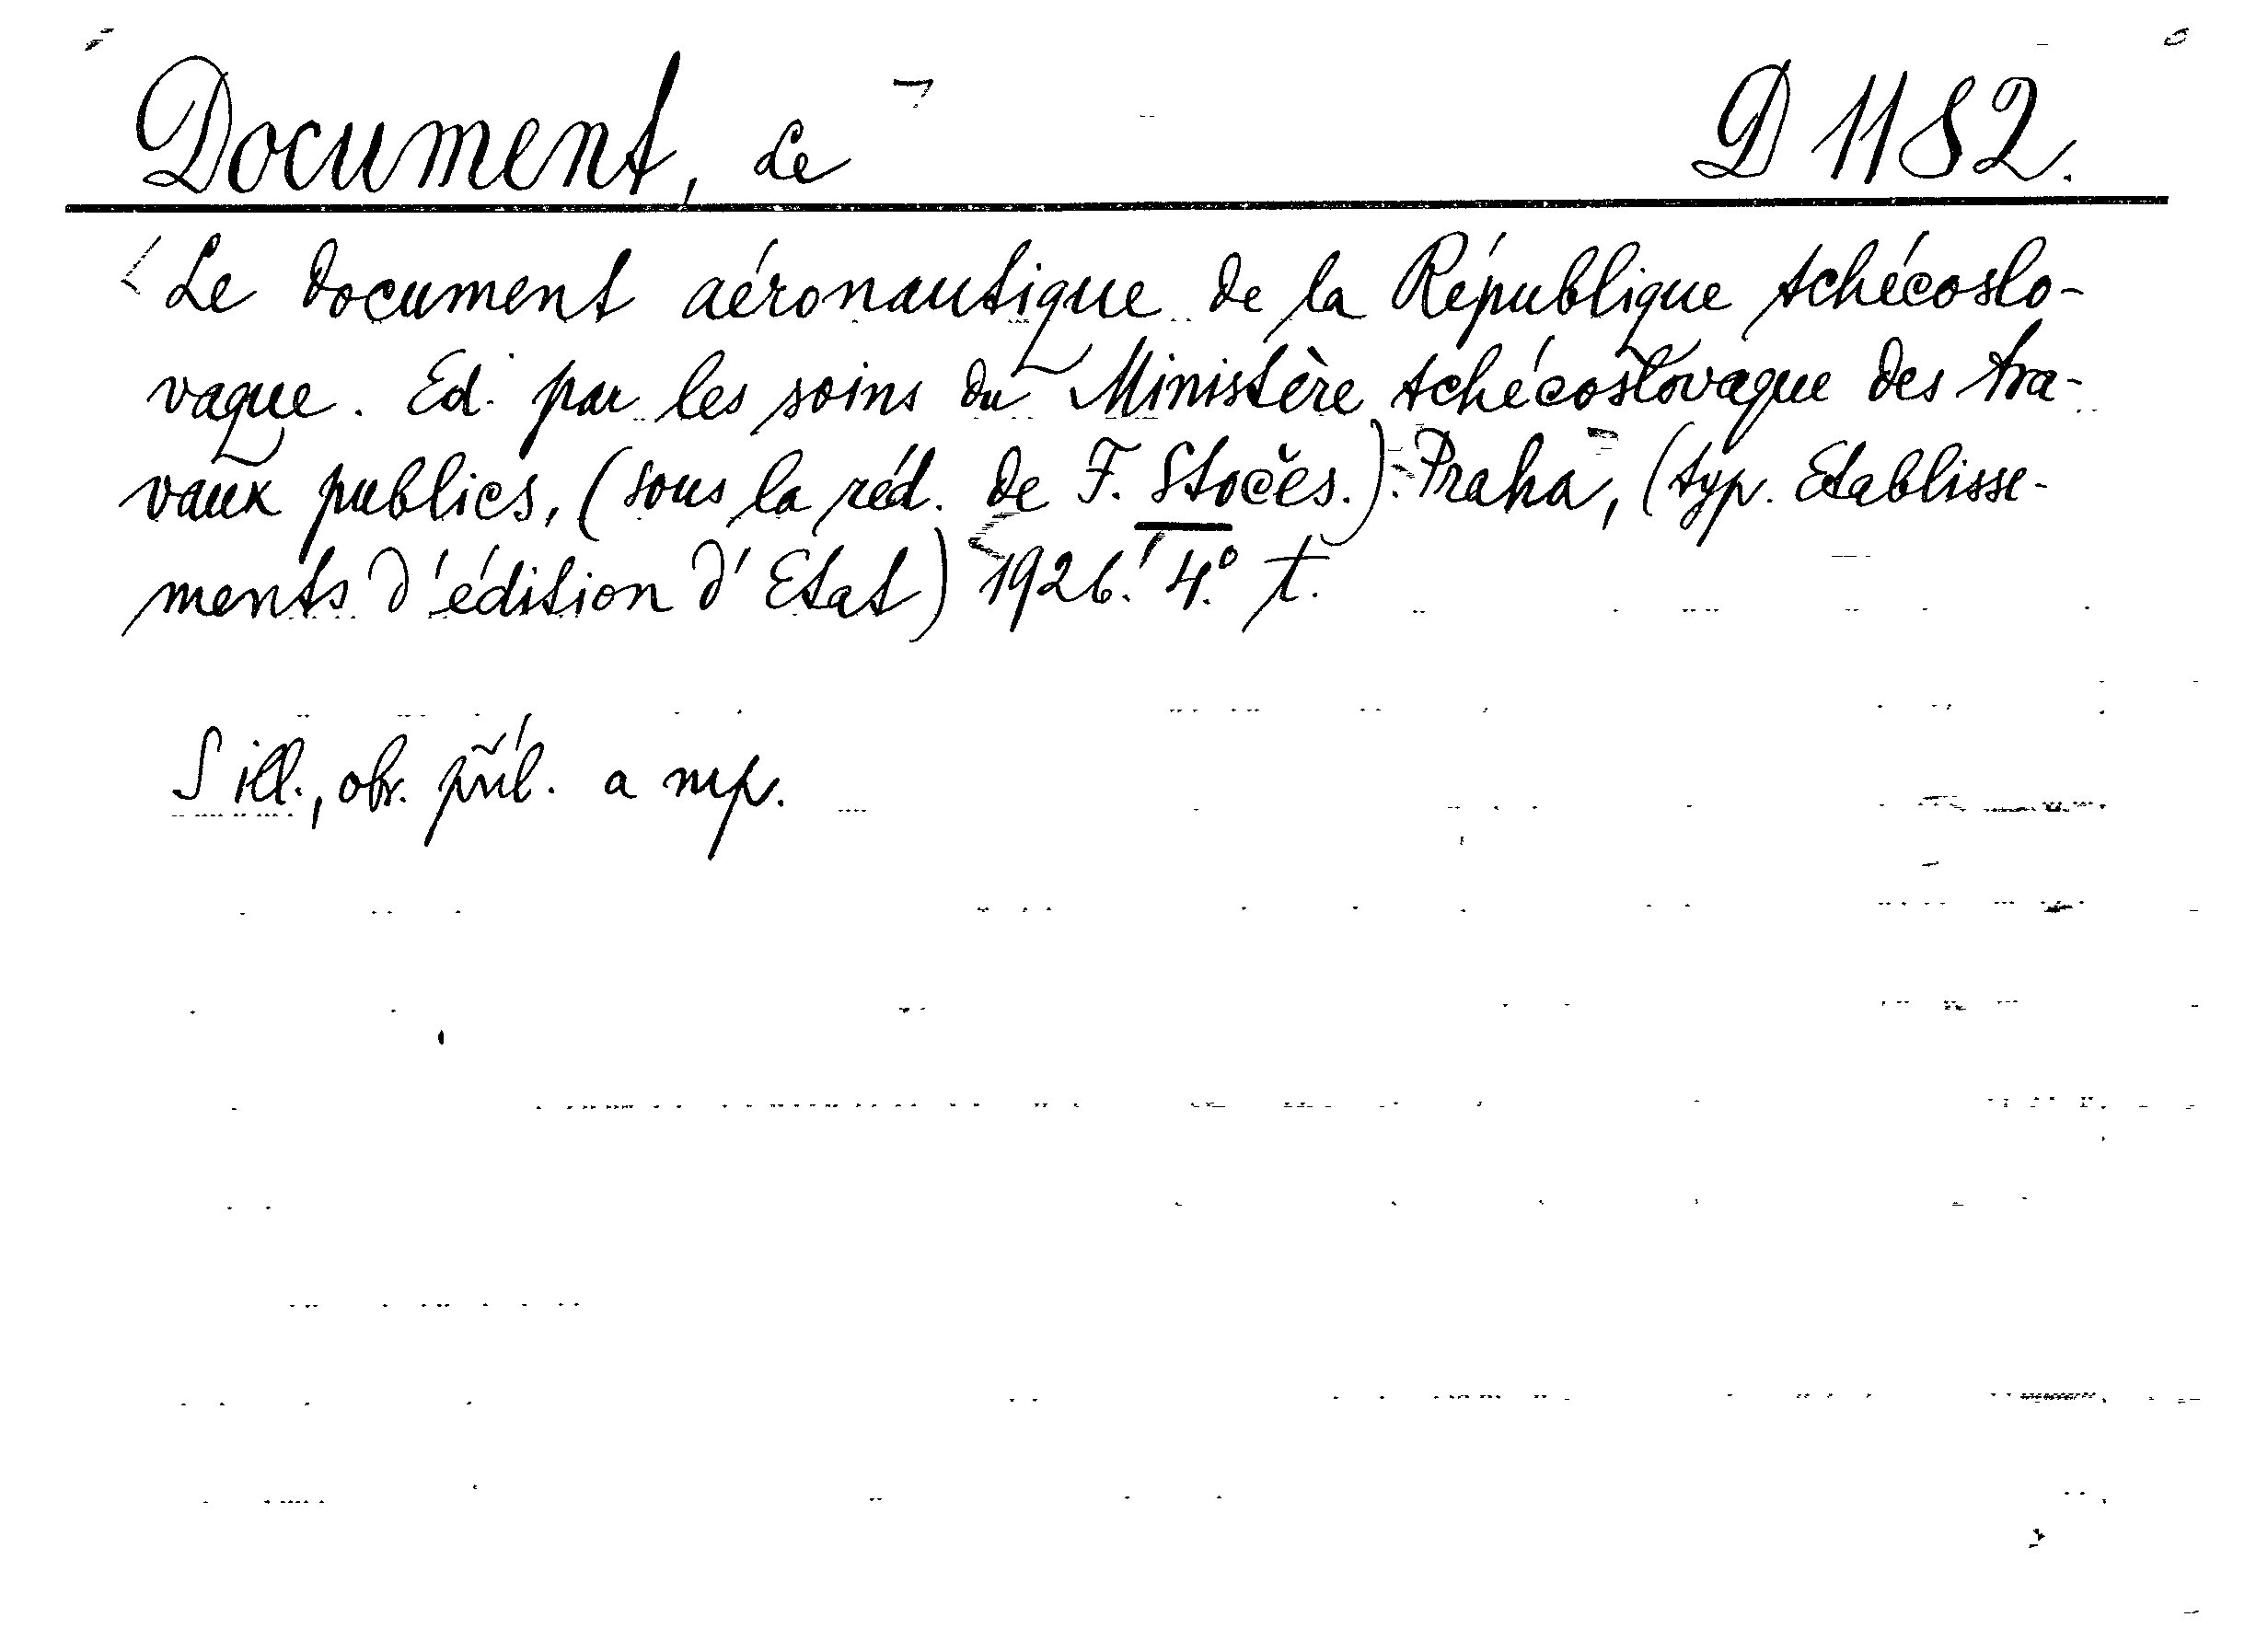 Document, Le D 1182.
Le document aéronautique de la République tchécoslo-
vaque. Ed. par les soins du Ministère tchécoslovaque des tra-
vaux publics, (sous la réd. de F. Stočes.) Praha, (typ. Etablisse-
ments d'édition d'Etat) 1926. 4.° t.
S ill., obr. příl. a mp.